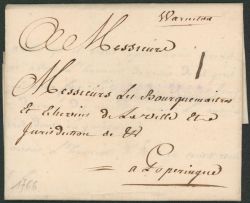 Warneton
A Messieurs
1
Messieurs Les Bourguemaitres
et Echevins de La Ville et
Jurisdiction de &
a Poperingue
1766